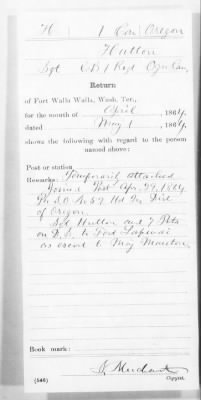 H 1 Cav. Oregon
Hutton
Sgt Co B 1 Regt Ogn Cav.
Return
of Fort Walla Walla, Wash. Ter.,
for the month of April, 1864.
dated May 1, 1864.
shows the following with regard to the person
named above:
Post or station
Remarks: Temporarily attached
Joined Post Apr. 29, 1864
S.O. No 59 Hd Qrs Dist
of Oregon.
Sgt Hutton and 7 Pvts
on D.S. to Fort Lapwai
as escort to Maj
Book mark:
(546) Copyist.